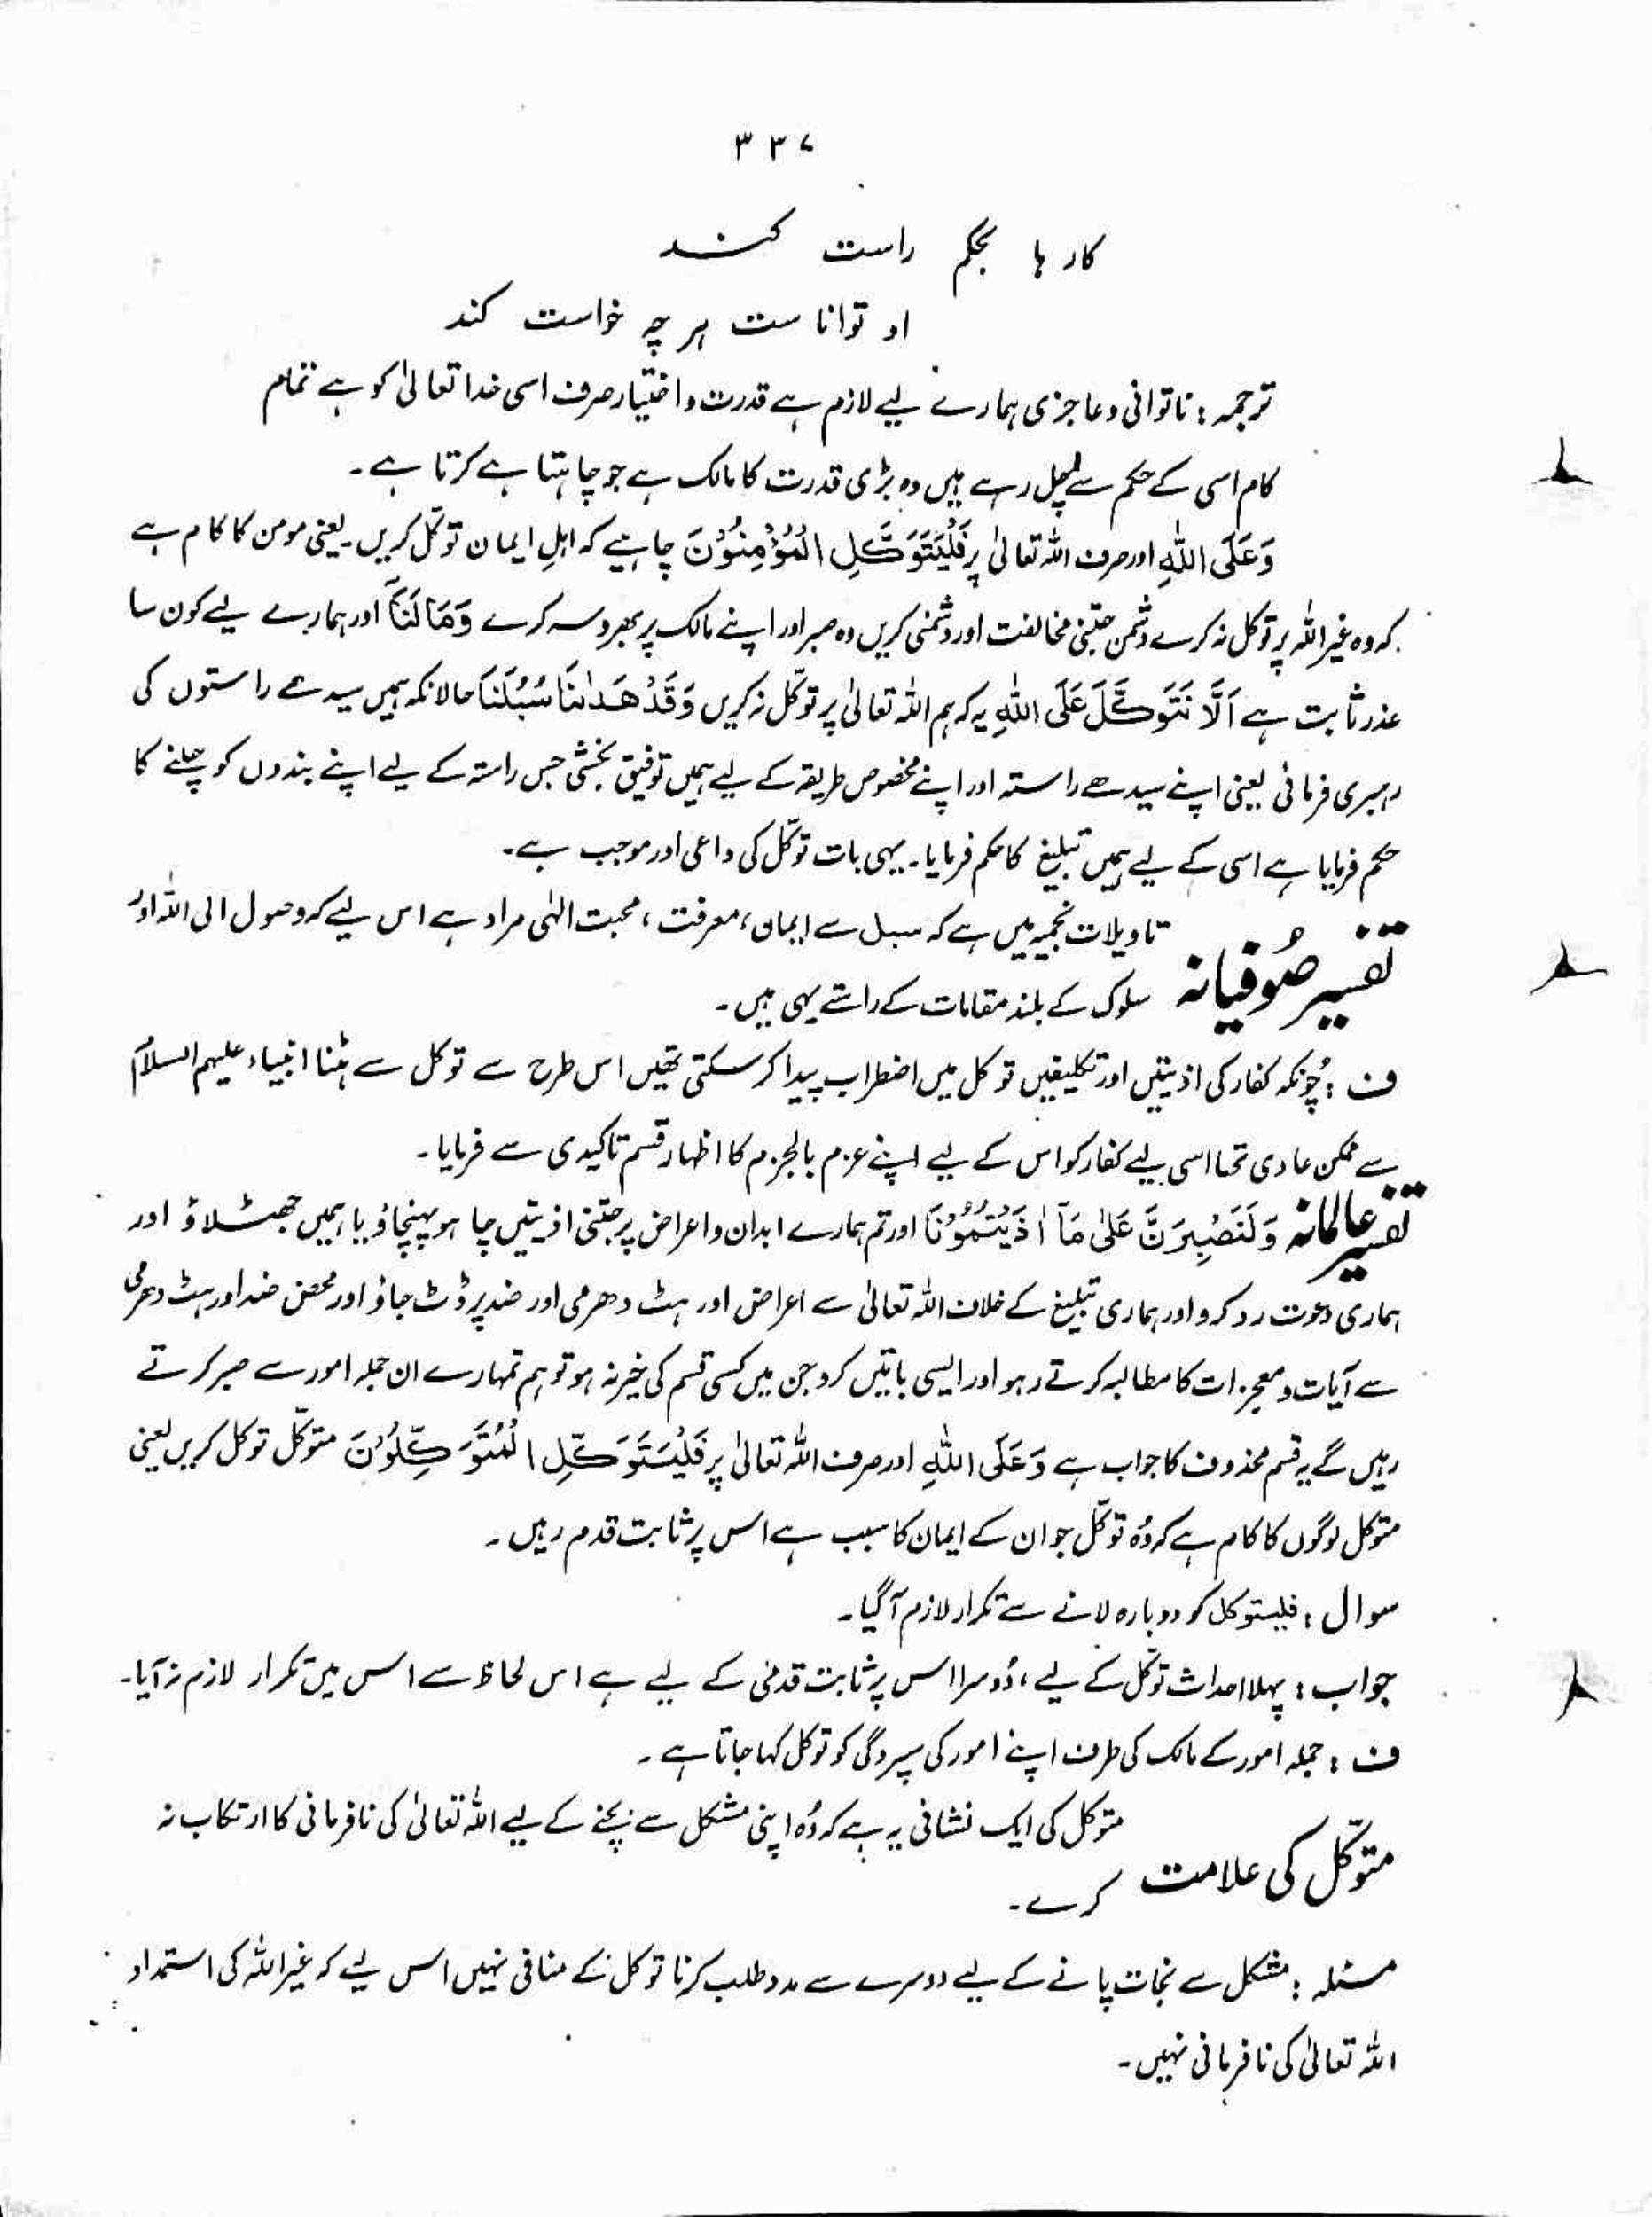 ۳۳۷
کارہا بحکم راست کند
او توانا ست ہر چہ خواست کند
ترجمہ : ناتوانی و عاجزی ہمارے لیے لازم ہے قدرت و اختیار صرف اسی خدا تعالیٰ کو ہے تمام
کام اسی کے حکم سے چل رہے ہیں وہ بڑی قدرت کا مالک ہے جو چاہتا ہے کرتا ہے۔
وَعَلَی اللّٰهِ اور صرف اللہ تعالیٰ پر فَلْیَتَوَكَّلِ الْمُؤْمِنُوْنَ چاہیے کہ اہلِ ایمان توکّل کریں۔ یعنی مومن کا کام ہے
کہ وہ غیر اللہ پر توکل نہ کرے دشمن جتنی مخالفت اور دشمنی کریں وہ صبر اور اپنے مالک پر بھروسہ کرے وَمَا لَنَآ اور ہمارے لیے کون سا
عذر ثابت ہے اَلَّا نَتَوَكَّلَ عَلَی اللّٰهِ یہ کہ ہم اللہ تعالیٰ پر توکّل نہ کریں وَقَدْ هَدٰىنَا سُبُلَنَا حالانکہ ہمیں سیدھے راستوں کی
رہبری فرمائی یعنی اپنے سیدھے راستہ اور اپنے مخصوص طریقہ کے لیے ہمیں توفیق بخشی جس راستہ کے لیے اپنے بندوں کو چلنے کا
حکم فرمایا ہے اسی کے لیے ہمیں تبلیغ کا حکم فرمایا۔ یہی بات توکّل کی داعی اور موجب ہے۔
تفسیر صُوفیانہ تاویلات نجمیہ میں ہے کہ سبل سے ایمان، معرفت، محبت الٰہی مراد ہے اس لیے کہ وصول الی اللہ اور
سلوک کے بلند مقامات کے راستے یہی ہیں۔
ف : چُونکہ کفار کی اذیتیں اور تکلیفیں توکل میں اضطراب پیدا کر سکتی تھیں اس طرح سے توکل سے ہٹنا انبیاء علیہم السلام
سے ممکن عادی تھا اسی لیے کفار کو اس کے لیے اپنے عزم بالجزم کا اظہار قسم تاکیدی سے فرمایا۔
تفسیر عالمانہ وَلَنَصْبِرَنَّ عَلٰی مَآ اٰذَیْتُمُوْنَا اور تم ہمارے ابدان و اعراض پر جتنی اذیتیں چاہو پہنچاؤ یا ہمیں جھٹلاؤ اور
ہماری دعوت رد کرو اور ہماری تبلیغ کے خلاف اللہ تعالیٰ سے اعراض اور ہٹ دھرمی اور ضد پر ڈٹ جاؤ اور محض ضد اور ہٹ دھرمی
سے آیات و معجزات کا مطالبہ کرتے رہو اور ایسی باتیں کرو جن میں کسی قسم کی خیر نہ ہو تو ہم تمہارے ان جملہ امور سے صبر کرتے
رہیں گے یہ قسم محذوف کا جواب ہے وَعَلَی اللّٰهِ اور صرف اللہ تعالیٰ پر فَلْیَتَوَكَّلِ الْمُتَوَكِّلُوْنَ متوکّل توکل کریں یعنی
متوکل لوگوں کا کام ہے کہ وُہ توکّل جو ان کے ایمان کا سبب ہے اس پر ثابت قدم رہیں۔
سوال : فلیتوکل کو دوبارہ لانے سے تکرار لازم آگیا۔
جواب : پہلا احداث توکّل کے لیے، دُوسرا اس پر ثابت قدمی کے لیے ہے اس لحاظ سے اس میں تکرار لازم نہ آیا۔
ف : جملہ امور کے مالک کی طرف اپنے امور کی سپردگی کو توکل کہا جاتا ہے۔
متوکّل کی علامت متوکل کی ایک نشانی یہ ہے کہ وُہ اپنی مشکل سے بچنے کے لیے اللہ تعالیٰ کی نافرمانی کا ارتکاب نہ
کرے۔
مسئلہ : مشکل سے نجات پانے کے لیے دوسرے سے مدد طلب کرنا توکل کے منافی نہیں اس لیے کہ غیر اللہ کی استمداد
اللہ تعالیٰ کی نافرمانی نہیں۔